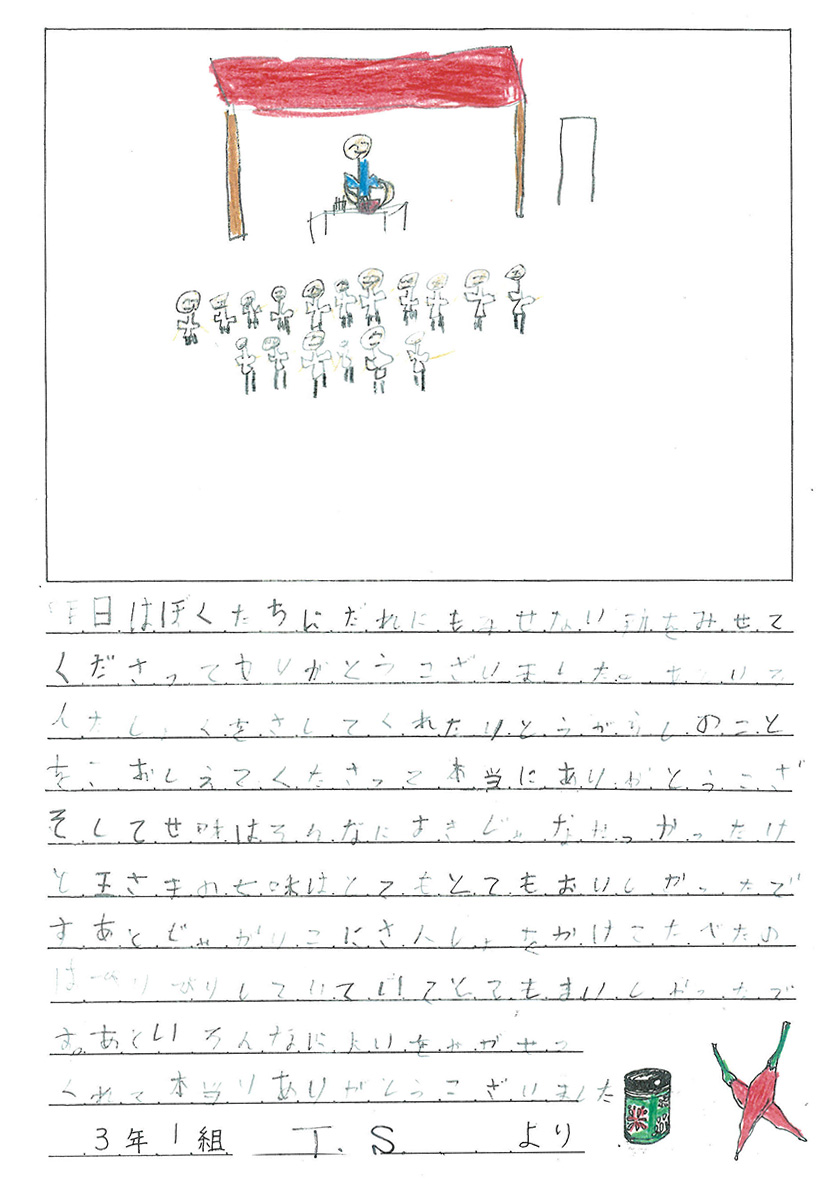 昨日はぼくたちにだれにもみせない所をみせて
くださってありがとうございました。あといろ
人たしょくをさしてくれたりとうがらしのこと
をこおしえてくださって本当にありがとうござ
そして七味はそんなにすきじゃなかっかったけ
と玉さまの七味はとてもとてもおいしかったで
すあとじゃがりこにさんしょをかけこたべたの
はぴりぴりしていてとてもおいしかったで
す。あといろんなにおいをかがせて
くれて本当りありがとうございました
3年1組 T.S より